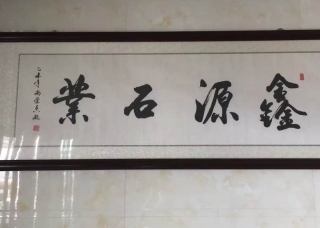 鑫源石業